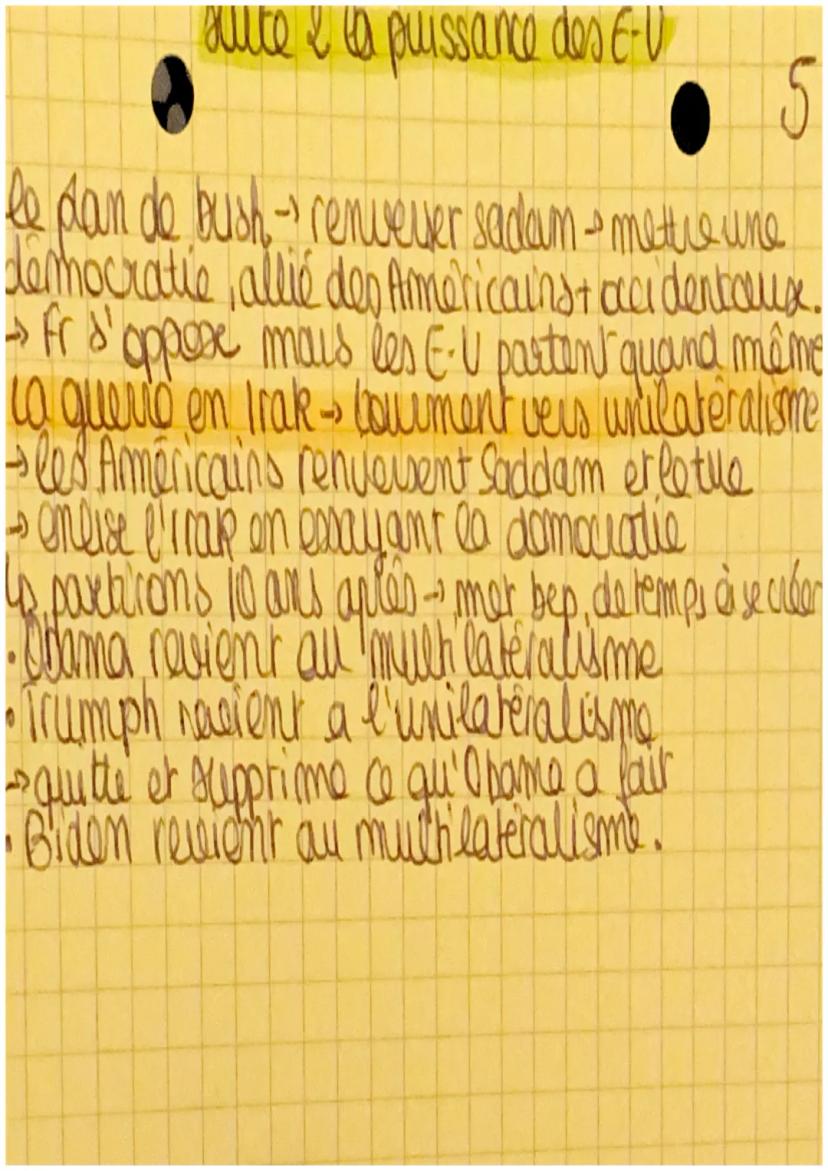 suite 2 la puissance des E-U
5
le plan de bush → renverser sadam → mettre une
démocratie, allié des Américains + occidentaux.
→ Fr s'oppose mais les E-U partent quand même
La guerre en Irak → tournent vers unilatéralisme
→ les Américains renversent Saddam et le tue
→ enlise l'irak en essayant la démocratie
↳ partirons 10 ans après → met bcp. de temps à se créer
• Obama revient au multilatéralisme
• Trumph revient a l'unilatéralisme
→ quitte et supprime ce qu'Obama a fait
• Biden revient au multilatéralisme.